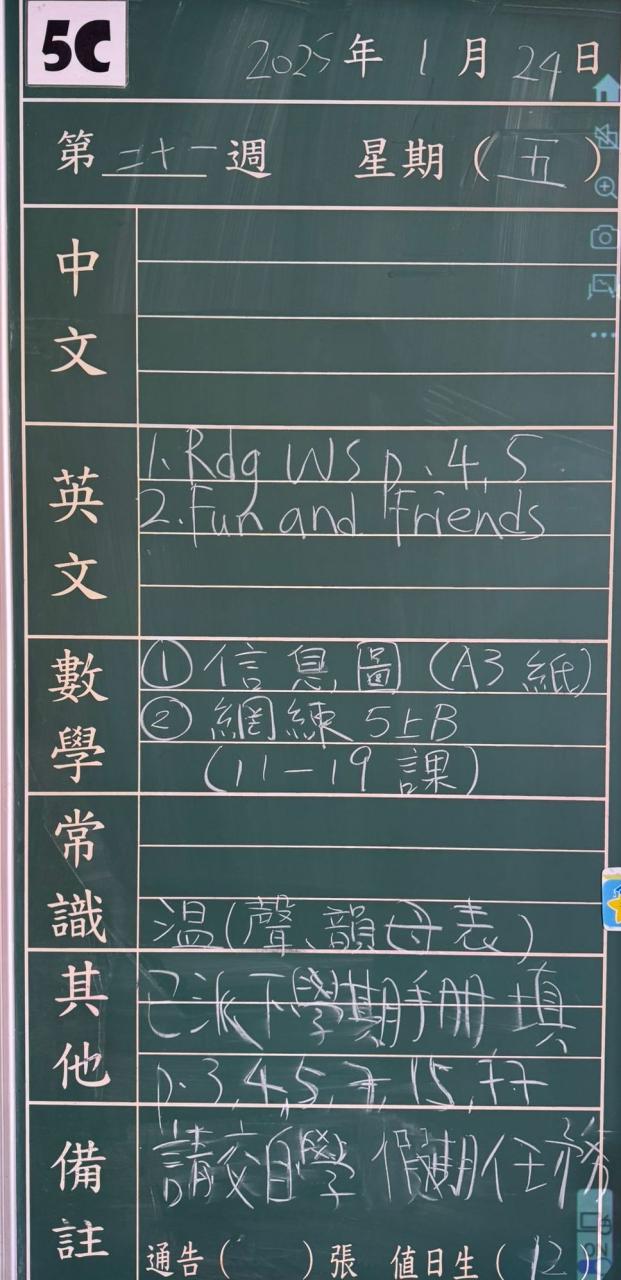 5C
2025年1月24日
第二十一週 星期(五)
中文
英文
1. Rdg WS p.4,5
2. Fun and Friends
數學
① 信息圖(A3紙)
② 網練5上B
(11-19課)
常識
溫(聲、韻母表)
其他
已派下學期手册 填
p.3,4,5,7,15,77
備註
請交自學假期任務
通告( )張 值日生(12)